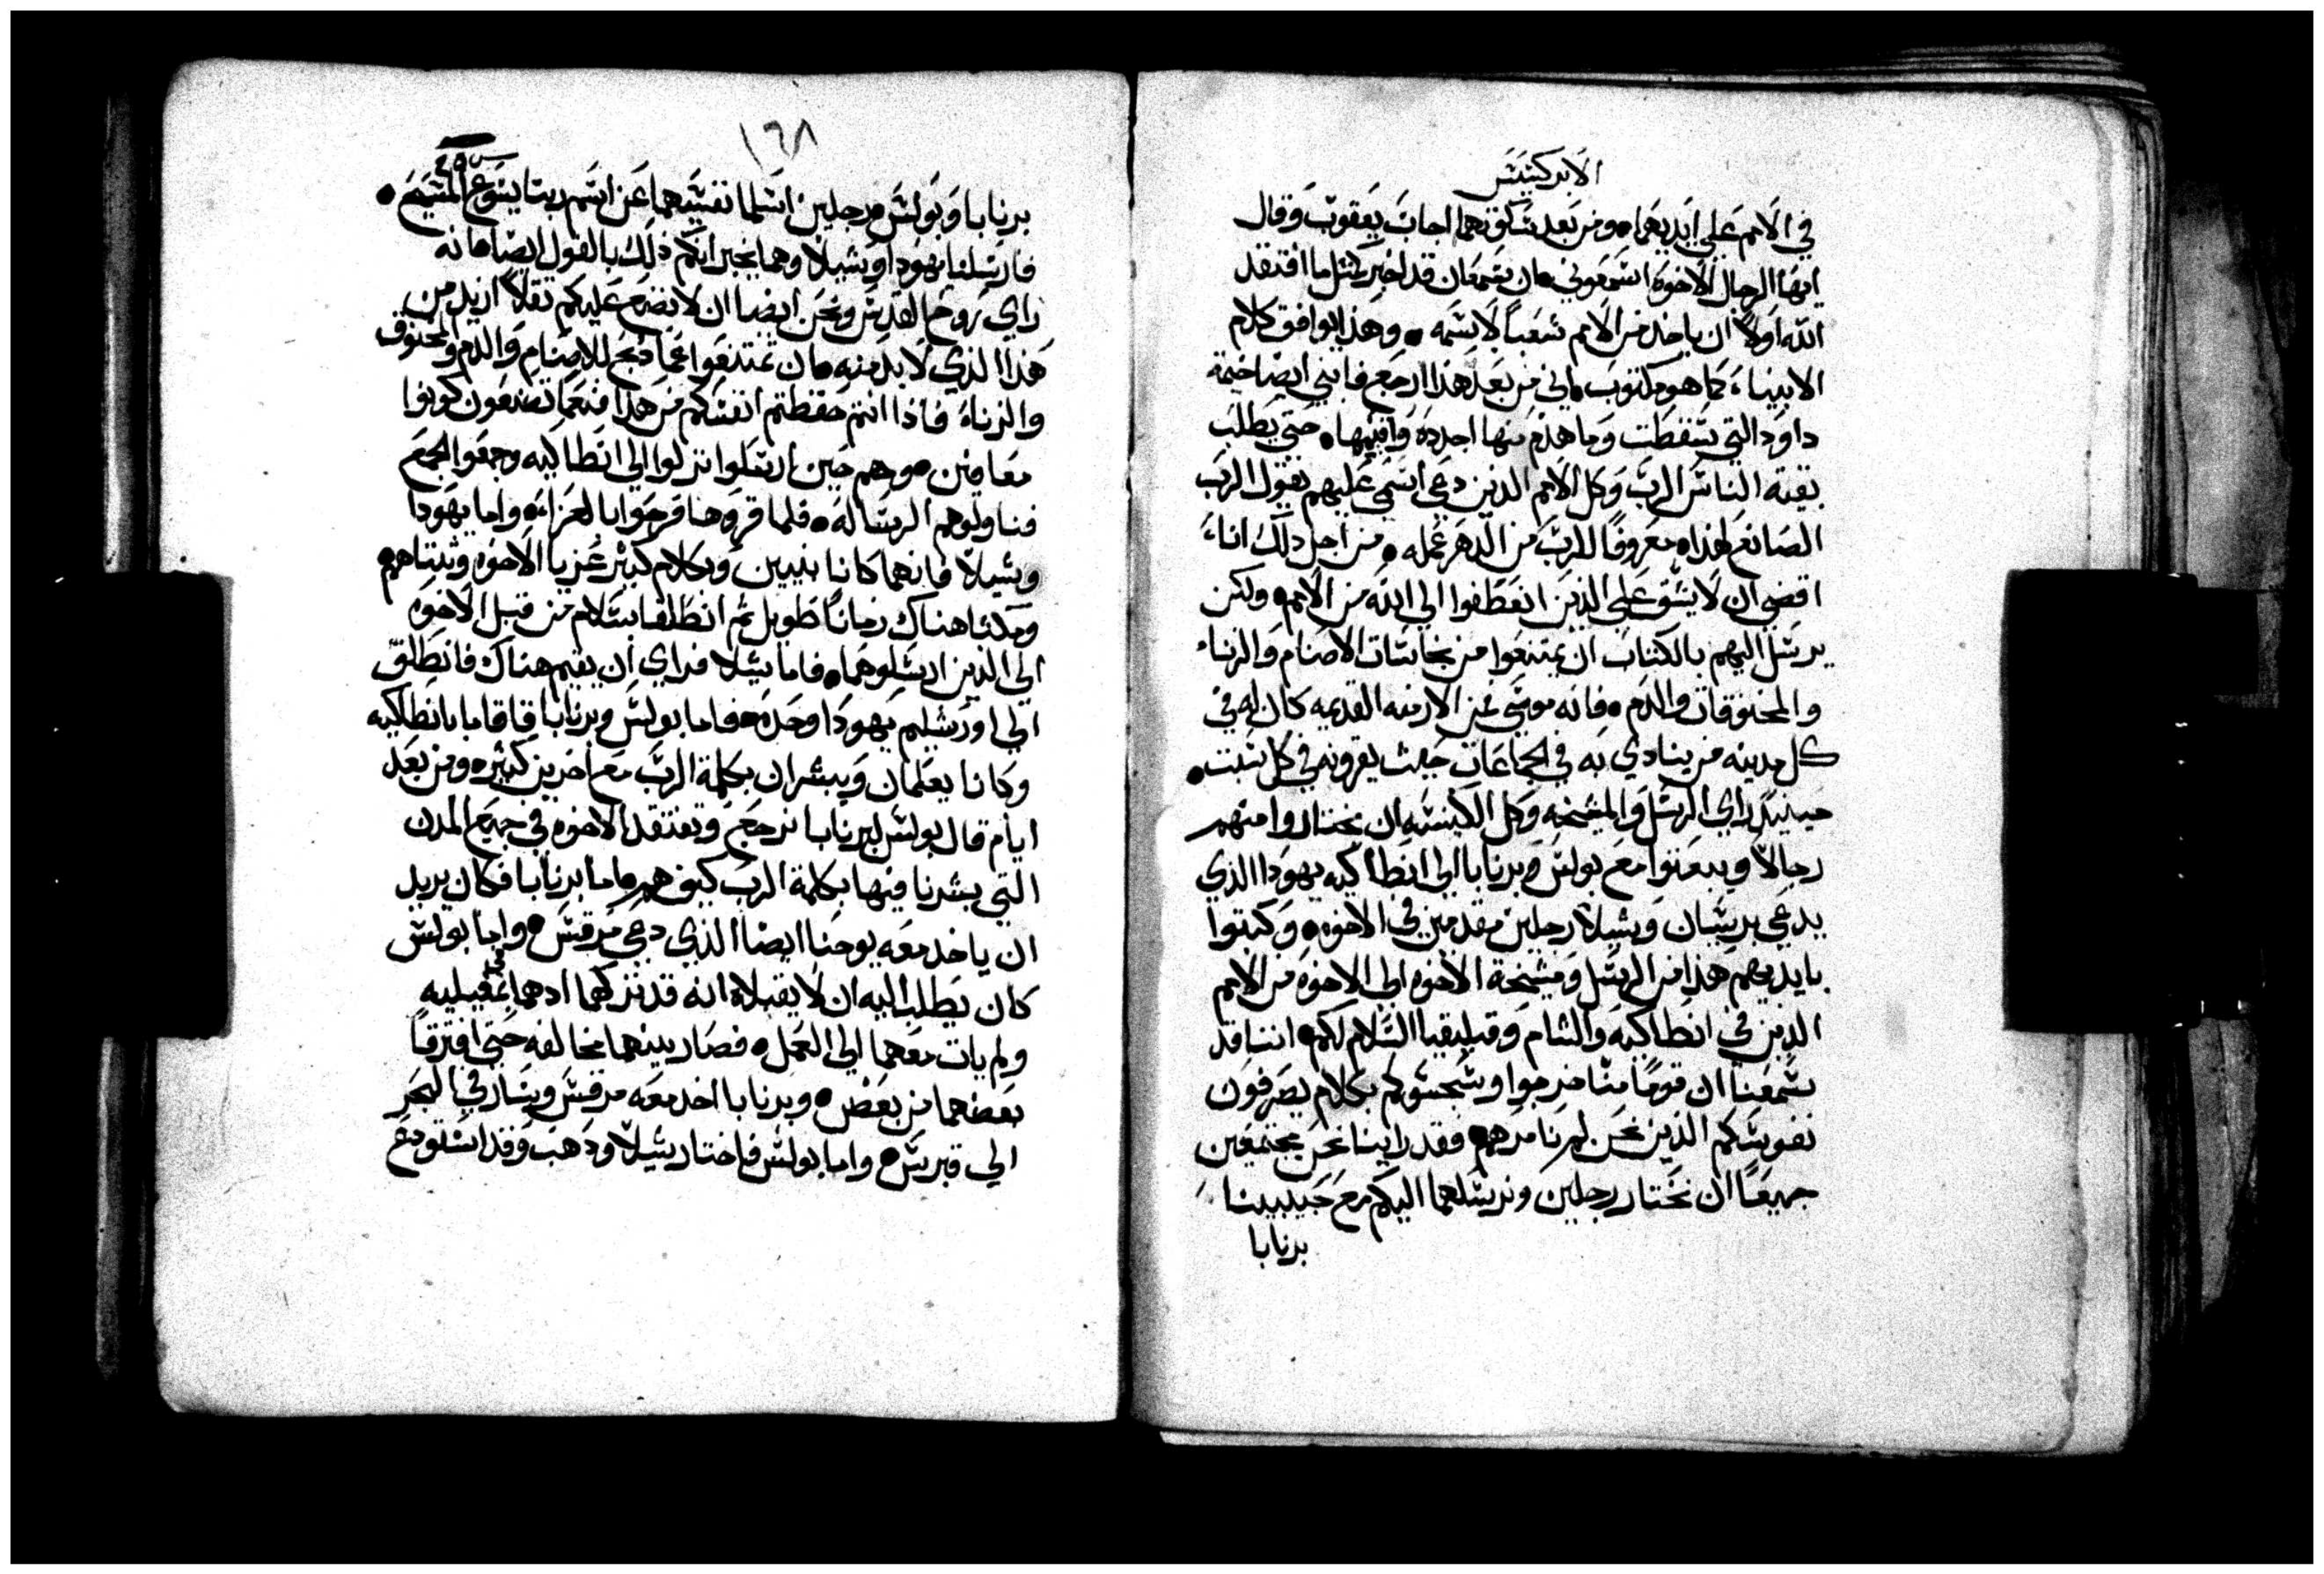 الابركسيس
في الامم على ايديهما ومن بعد سكوتهما اجاب يعقوب وقال
ايها الرجال الاخوه اسمعوني ان سمعان قد اخبر كمثل ما افتقد
الله اولاً ان ياخد من الامم شعباً لاسمه وهذا يوافق كلام
الانبياء كما هو مكتوب اني من بعد هذا ارجع فابني ايضا خيمة
داود التي سقطت وما هدم منها اجدده واقيمها حتى يطلب
بقية الناس الرب وكل الامم الدين دعي اسمي عليهم يقول الرب
الصانع لهذا معروفاً للرب من الدهر عمله من اجل دلك انا
اقضي ان لا يشق على الذين انعطفوا الى الله من الامم ولكن
يرسل اليهم بالكتاب ان يمتنعوا من نجاسات الاصنام والزناء
والمخنوقات والدم فانه موسى من الازمنه القديمه كان له في
كل مدينه من ينادي به في الجماعات حيث يقرونه في كل سبت
حينيد راي الرسل والمشيخه وكل الكنيسه ان يختاروا منهم
رجالاً ويبعتوا مع بولس وبرنابا الى انطاكيه يهودا الذي
يدعى برسبان وشيلا رجلين مقدمين في الاخوه وكتبوا
بايديهم هذا من الرسل ومشيخة الاخوه الى الاخوه من الامم
الدين في انطاكيه والشام وقيليقيا السلام لكم اننا قد
سمعنا ان قوماً منا خرجوا وسجسوكم بكلام يصرفون
نفوسكم الذين نحن لم نامرهم وقد راينا نحن مجتمعين
جميعاً ان نختار رجلين ونرسلهما اليكم مع حبيبينا
برنابا
١٦٨
برنابا وبولس رجلين اسلما نفسيهما عن اسم ربنا يسوع المسيح
فارسلنا يهودا وشيلا وهما يخبرانكم ذلك بالقول ايضا انه
راي روح القدس ونحن ايضا ان لا نضع عليكم ثقلاً ازيد من
هذا الذي لا بد منه ان تمتنعوا مما دبح للاصنام والدم والمخنوق
والزناء فاذا انتم حفظتم انفسكم من هذا فنعما تصنعون كونوا
معافين وهم حين ارسلوا نزلوا الى انطاكيه وجمعوا الجمع
فناولوهم الرساله فلما قروها فرحوا بالعزاء واما يهودا
وشيلا فانهما كانا نبيين وبكلام كتير عزيا الاخوه وثبتاهم
ومكثا هناك زماناً طويل ثم انطلقا بسلام من قبل الاخوه
الى الذين ارسلوهما فاما شيلا فراي ان يقيم هناك فانطلق
الى اورشليم يهودا وحده فاما بولس وبرنابا فاقاما بانطاكيه
وكانا يعلمان ويبشران بكلمة الرب مع اخرين كثيره ومن بعد
ايام قال بولس لبرنابا نرجع ونفتقد الاخوه في جميع المدن
التي بشرنا فيها بكلمة الرب كيف هم اما برنابا فكان يريد
ان ياخد معه يوحنا ايضا الذي دعي مرقس واما بولس
كان يطلب اليه ان لا يقبلاه انه قد تركهما اد هما
ولم يات معهما الى العمل فصار بينهما مخالفه حتى افترقا
بعضهما من بعض وبرنابا اخد معه مرقس وسار في البحر
الى قبرس واما بولس فاختار شيلا ودهب وقد استودع